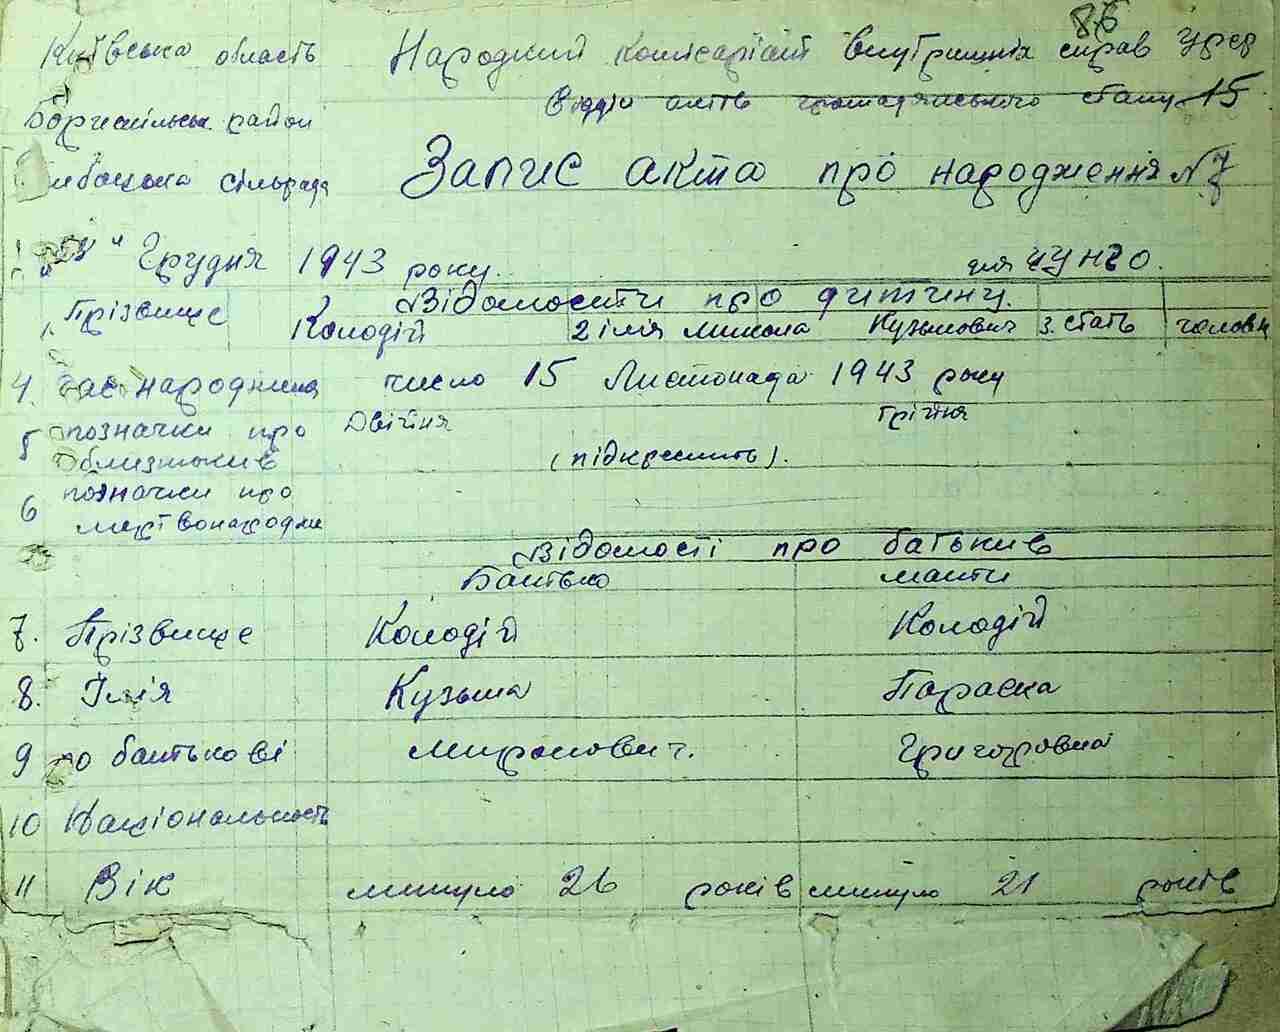 86
Київська область Народний комісаріат внутришніх справ УРСР
Відділ актів громадянського стану 15
Бориспільськ. район
сільрада Запис акта про народження № 7
" " Грудня 1943 року. для ЧУНГО.
Відомосити про дитину.
1. Прізвище Колодій 2 імія Микола Кузьмович 3. стать чоловіч
4. Час народженя число 15 Листопада 1943 року
5 позначки про близнюків Двійня Трійня
(підкреслить).
6 позначки про мертвонароджен
Відомості про батьків
Батько мати
7. Прізвище Колодій Колодій
8. Імія Кузьма Параска
9 по батькові Миронович. Григоровна
10 Національность
11 Вік минуло 26 років минуло 21 років